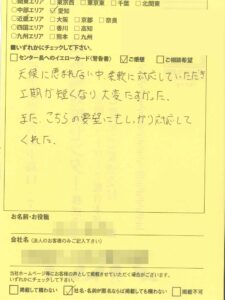 □関東エリア □東京 □東京東 □千葉 □北関東
□中部エリア ☑愛知
□近畿エリア □大阪 □京都 □奈良
□四国エリア □香川 □高知
□九州エリア □熊本 □九州
■いずれかにチェックして下さい。
□センター長へのイエローカード(警告書) ☑ご褒嘆 □ご相談希望
天候に恵まれない中、柔軟に対応していただき
工期が短くなり大変たすかった。
また、こちらの要望にもしっかり対応して
くれた。
お名前・お役職
会社名 (法人のお客様のみご記入下さい)
当社ホームページ等にお客様の声として掲載させていただく場合がございます。
いずれかにチェックして下さい。
□掲載して構わない ☑社名・名前が匿名ならば掲載しても構わない □掲載不可